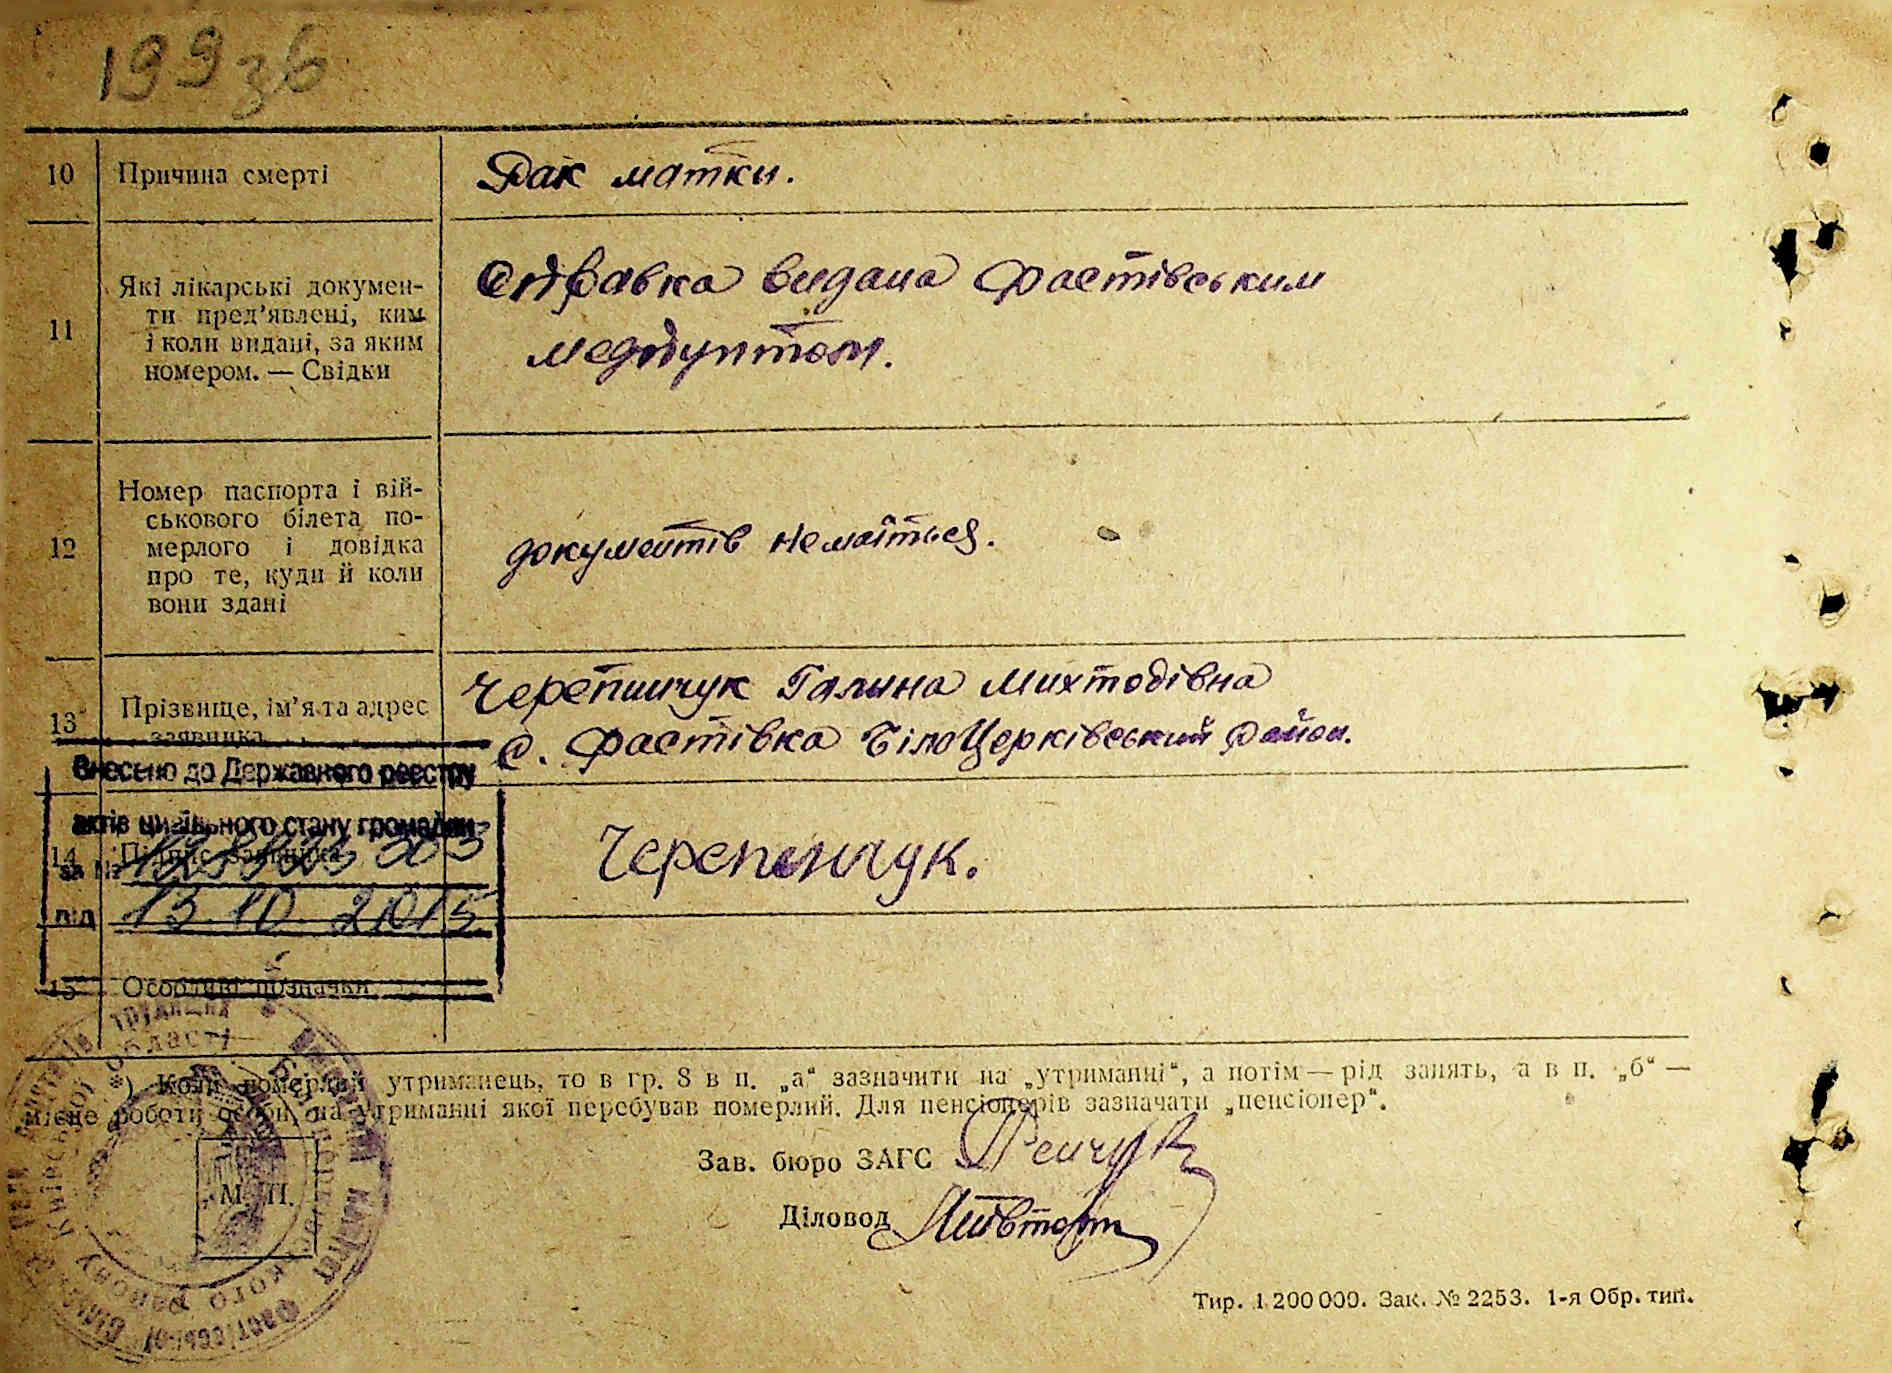 199 зв
10 Причина смерті
Рак матки.
11 Які лікарські докумен-
ти пред'явлені, ким
і коли видані, за яким
номером. — Свідки
Справка видана Фастівським
медпунтом.
12 Номер паспорта і вій-
ськового білета по-
мерлого і довідка
про те, куди й коли
вони здані
документів немаїться.
13 Прізвище, ім'я та адрес
заявника
Черепинчук Галина
с. Фастівка БілоЦерківський район.
Внесено до Державного реєстру
актів цивільного стану громадян
14 Підпис заявника
за №
Черепинчук.
від 13.10.2015
15 Особливі позначки
*) Коли померлий утриманець, то в гр. 8 в п. „а“ зазначити на „утриманні“, а потім — рід занять, а в п. „б“ —
місце роботи особи, на утриманні якої перебував померлий. Для пенсіонерів зазначати „пенсіонер“.
Зав. бюро ЗАГС
М. П.
Діловод
Тир. 1.200 000. Зак. № 2253. 1-я Обр. тип.